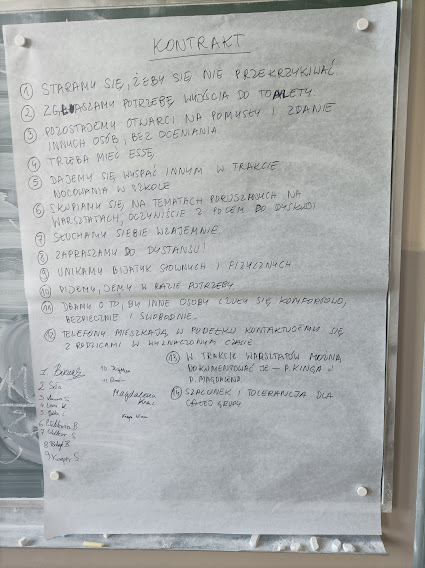 KONTRAKT
1 STARAMY SIĘ, ŻEBY SIĘ NIE PRZEKRZYKIWAĆ
2 ZGŁASZAMY POTRZEBĘ WYJŚCIA DO TOALETY
3 POZOSTAJEMY OTWARCI NA POMYSŁY I ZDANIE
INNYCH OSÓB, BEZ OCENIANIA.
4 TRZEBA MIEĆ ESSĘ
5 DAJEMY SIĘ WYSPAĆ INNYM W TRAKCIE
NOCOWANIA W SZKOLE
6 SKUPIAMY SIĘ NA TEMATACH PORUSZANYCH NA
WARSZTATACH, OCZYWIŚCIE Z POLEM DO DYSKUSJI
7 SŁUCHAMY SIEBIE WZAJEMNIE
8 ZAPRASZAMY DO DYSTANSU!
9 UNIKAMY BIJATYK SŁOWNYCH I FIZYCZNYCH.
10 PIJEMY, JEMY W RAZIE POTRZEBY
11 DBAMY O TO, BY INNE OSOBY CZUŁY SIĘ KOMFORTOWO,
BEZPIECZNIE I SWOBODNIE.
12 TELEFONY MIESZKAJĄ W PUDEŁKU KONTAKTUJEMY SIĘ
Z RODZICAMI W WYZNACZONYM CZASIE
13 W TRAKCIE WARSZTATÓW MOŻNA
DOKUMENTOWAĆ JE – P. KINGA I
P. MAGDALENA
14 SZACUNEK I TOLERANCJA DLA
CAŁEJ GRUPY
1
2
3
4
5
6 B.
7 S
8 B.
9 Kacper S
10
11
Magdalena
Kinga